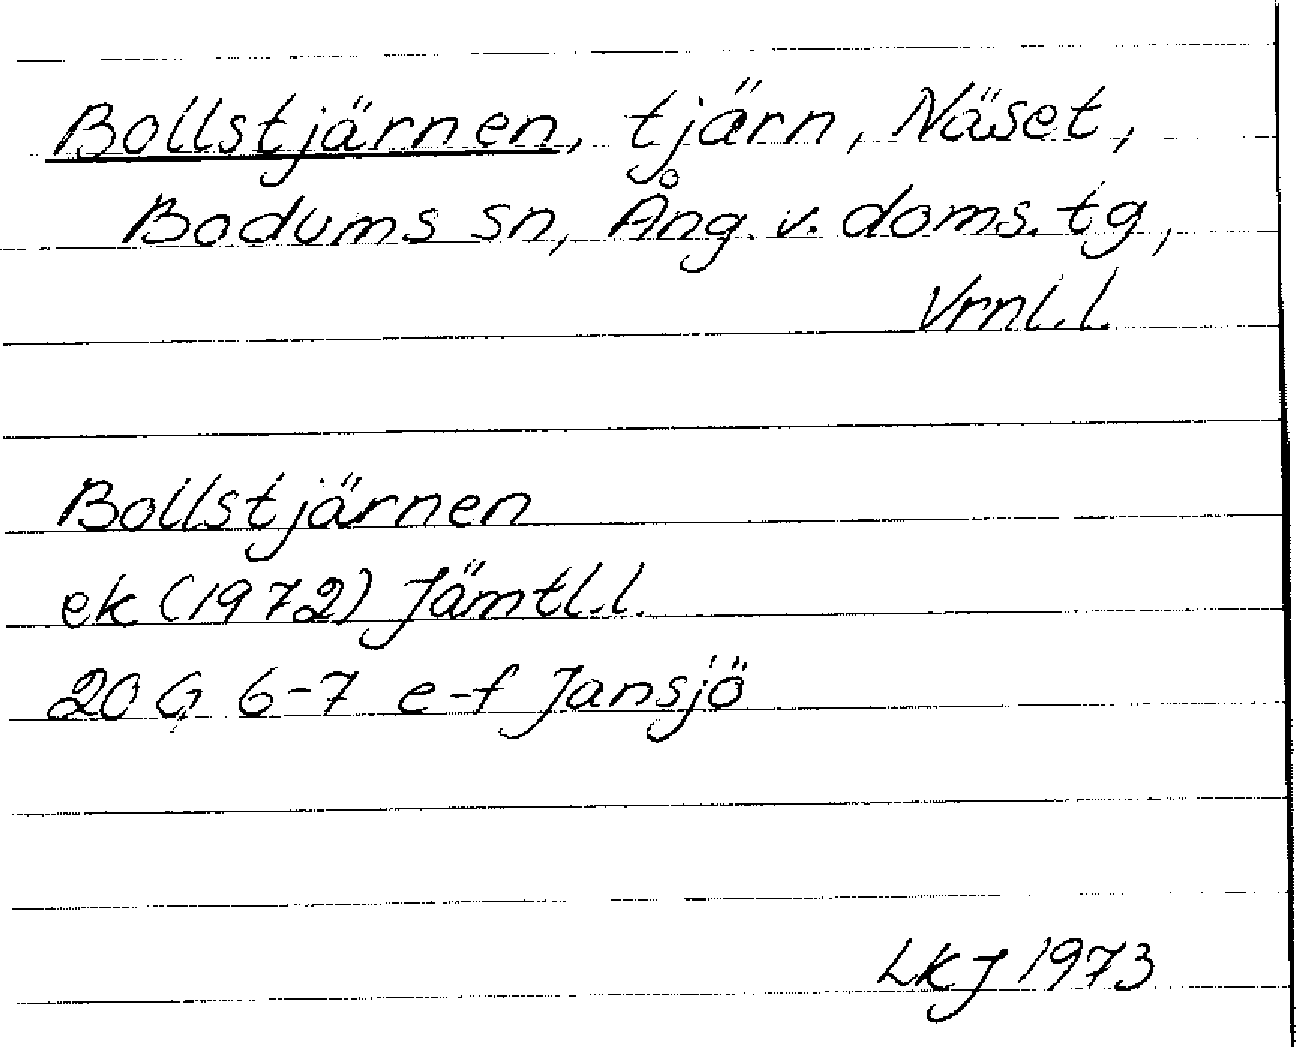 Bollstjärnen, tjärn, Näset,
Bodums sn, Ång. v. doms. tg,
Vrnl. l.
Bollstjärnen
ek (1972) Jämtl. l.
20 G 6-7 e-f Jansjö
LKJ 1973